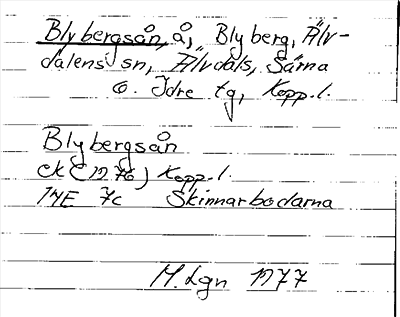 Blybergsån, å, Blyberg, Älv-
dalens sn, Älvdals, Särna
o. Idre tg, Kopp.l.
Blybergsån
EK (1976) Kopp.l.
14E 7c Skinnarbodarna
M.Lgn 1977